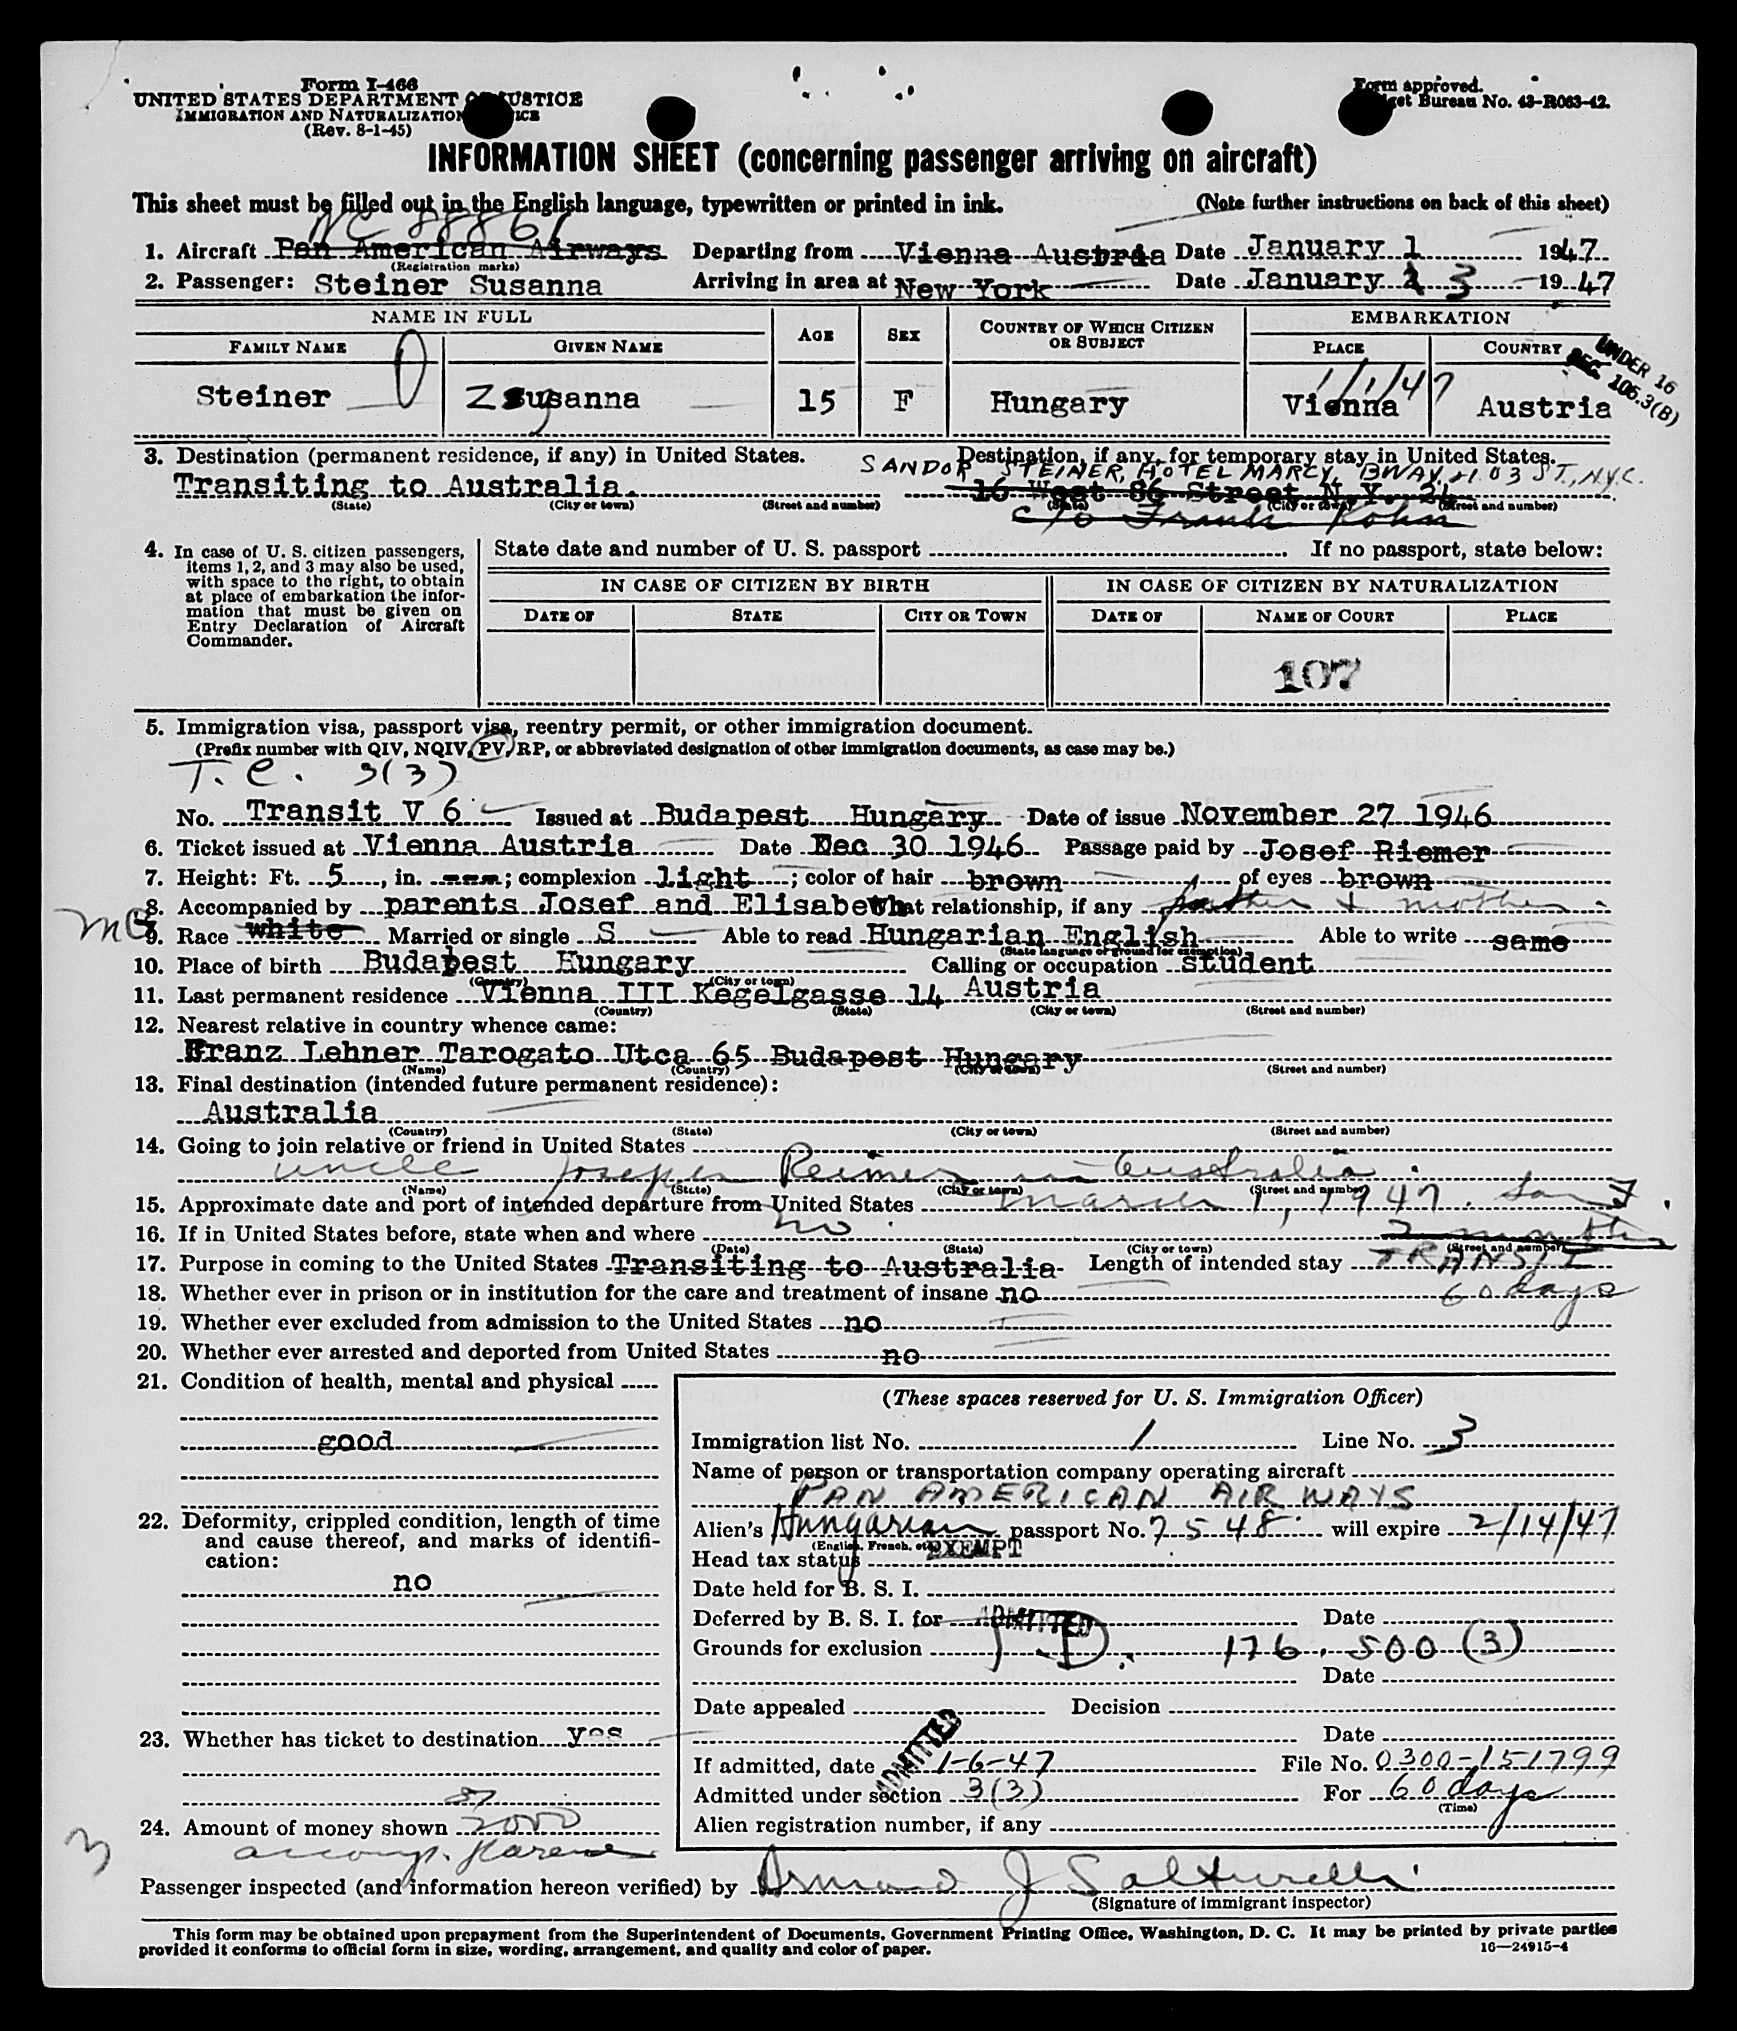 Form I-466
UNITED STATES DEPARTMENT OF JUSTICE
IMMIGRATION AND NATURALIZATION SERVICE
(Rev. 8-1-45)
Form approved.
Budget Bureau No. 43-R063-42.
INFORMATION SHEET (concerning passenger arriving on aircraft)
This sheet must be filled out in the English language, typewritten or printed in ink. (Note further instructions on back of this sheet)
NC 88861
1. Aircraft Pan American Airways Departing from Vienna Austria Date January 1 1947
(Registration marks)
2. Passenger: Steiner Susanna Arriving in area at New York Date January 3 1947
NAME IN FULL AGE SEX COUNTRY OF WHICH CITIZEN OR SUBJECT EMBARKATION
FAMILY NAME GIVEN NAME PLACE COUNTRY
UNDER 16
SEC. 106.3(B)
1/1/47
Steiner Zsusanna 15 F Hungary Vienna Austria
3. Destination (permanent residence, if any) in United States. Destination, if any, for temporary stay in United States.
SANDOR STEINER, HOTEL MARCY, BWAY + 103 ST., N.Y.C.
Transiting to Australia. 16 West 86 Street N.Y. 24
(State) (City or town) (Street and number) (State) (City or town) (Street and number)
c/o Frank Kohn
4. In case of U. S. citizen passengers, items 1, 2, and 3 may also be used, with space to the right, to obtain at place of embarkation the information that must be given on Entry Declaration of Aircraft Commander.
State date and number of U. S. passport . If no passport, state below:
IN CASE OF CITIZEN BY BIRTH IN CASE OF CITIZEN BY NATURALIZATION
DATE OF STATE CITY OR TOWN DATE OF NAME OF COURT PLACE
107
5. Immigration visa, passport visa, reentry permit, or other immigration document.
(Prefix number with QIV, NQIV, PV, RP, or abbreviated designation of other immigration documents, as case may be.)
T. C. 3(3)
No. Transit V 6 Issued at Budapest Hungary Date of issue November 27 1946
6. Ticket issued at Vienna Austria Date Dec 30 1946 Passage paid by Josef Riemer
7. Height: Ft. 5, in. ; complexion light; color of hair brown of eyes brown
8. Accompanied by parents Josef and Elisabeth What relationship, if any father & mother
9. Race white Married or single S Able to read Hungarian English Able to write same
(State language or ground for exemption)
10. Place of birth Budapest Hungary Calling or occupation student
(Country) (City or town)
11. Last permanent residence Vienna III Kegelgasse 14 Austria
(Country) (State) (City or town) (Street and number)
12. Nearest relative in country whence came:
Franz Lehner Tarogato Utca 65 Budapest Hungary
(Name) (Country) (City or town) (Street and number)
13. Final destination (intended future permanent residence):
Australia
(Country) (State) (City or town) (Street and number)
14. Going to join relative or friend in United States
uncle Joseph Reimer in Australia
(Name) (State) (City or town) (Street and number)
15. Approximate date and port of intended departure from United States March 1, 1947. San F.
16. If in United States before, state when and where no
2 months
(Date) (State) (City or town) (Street and number)
17. Purpose in coming to the United States Transiting to Australia Length of intended stay TRANSIT
60 days
18. Whether ever in prison or in institution for the care and treatment of insane no
19. Whether ever excluded from admission to the United States no
20. Whether ever arrested and deported from United States no
21. Condition of health, mental and physical
good
22. Deformity, crippled condition, length of time and cause thereof, and marks of identification:
no
23. Whether has ticket to destination yes
24. Amount of money shown 2000
accomp. parents
(These spaces reserved for U. S. Immigration Officer)
Immigration list No. 1 Line No. 3
Name of person or transportation company operating aircraft
PAN AMERICAN AIRWAYS
Alien's Hungarian passport No. 7548 will expire 2/14/47
(English, French, etc.)
Head tax status EXEMPT
Date held for B. S. I.
Deferred by B. S. I. for ADMITTED Date
Grounds for exclusion 176.500 (3)
Date
Date appealed Decision
Date
ADMITTED
If admitted, date 1-6-47 File No. 0300-151799
Admitted under section 3(3) For 60 days
(Time)
Alien registration number, if any
Passenger inspected (and information hereon verified) by Armand J Salturelli
(Signature of immigrant inspector)
This form may be obtained upon prepayment from the Superintendent of Documents, Government Printing Office, Washington, D. C. It may be printed by private parties
provided it conforms to official form in size, wording, arrangement, and quality and color of paper. 16—24915-4